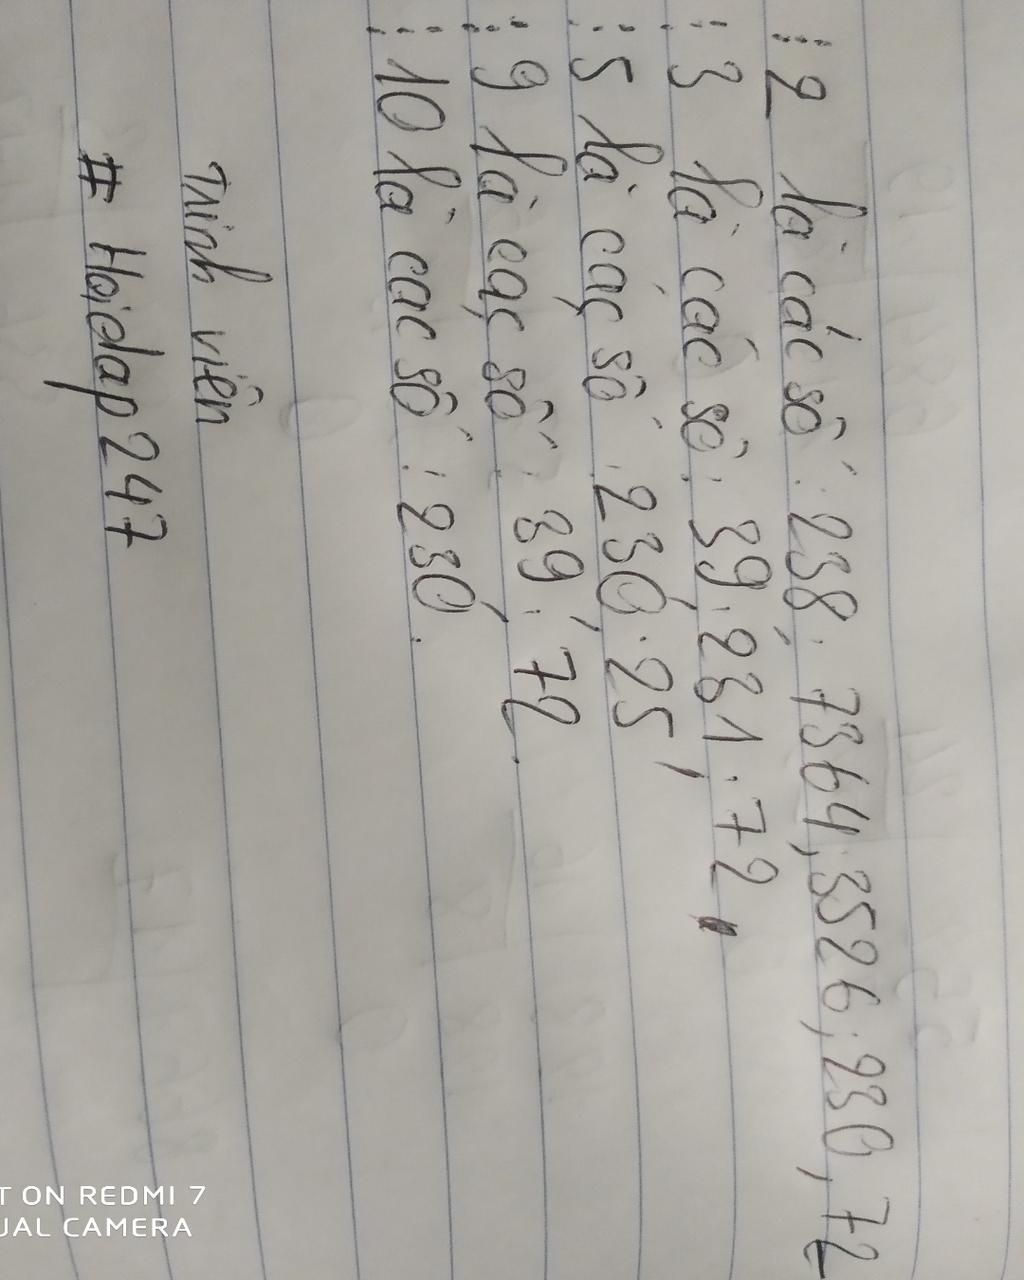 ⋮ 2 là các số : 238; 7364, 3526, 230, 72
⋮ 3 là các số : 39, 231, 72.
⋮ 5 là các số : 230, 25,
⋮ 9 là các số : 39, 72.
⋮ 10 là các số : 230.
Trinh viên
# Hoidap247
T ON REDMI 7
UAL CAMERA